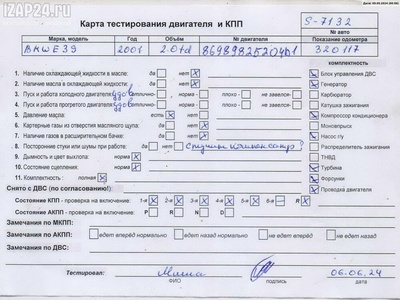 IZAP24.RU
Карта тестирования двигателя и КПП
S-7132
№ авто
Марка, модель Год Объём № двигателя Показание одометра
BMW E39 2001 2.0td 320117
комплектность
1. Наличие охлаждающей жидкости в масле: да нет X
2. Наличие масла в охлаждающей жидкости: да нет X
3. Пуск и работа холодного двигателя: отлично- норма- плохо - не завелся-
4. Пуск и работа прогретого двигателя: отлично- норма- плохо - не завелся-
5. Давление масла: есть X нет
6. Картерные газы из отверстия масляного щупа: да нет X
7. Наличие газов в расширительном бачке: да нет X
8. Посторонние стуки или шумы при работе: да нет
9. Дымность и цвет выхлопа: норма X
10. Состояние сцепления: норма X
11. Комплектность: полная X
Блок управления ДВС
Генератор
Карбюратор
Катушка зажигания
Компрессор кондиционера
Моновпрыск
Насос г/у
Распределитель зажигания
ТНВД
Турбина
Форсунки
Проводка двигателя
Снято с ДВС (по согласованию!):
Состояние КПП - проверка на включение: 1-я X 2-я X 3-я X 4-я X 5-я X 6-я R X
Состояние АКПП - проверка на включение: P R N D
Замечания по МКПП:
Замечания по АКПП: едет вперёд нормально едет назад нормально не едет вперёд не едет назад
Замечания по ДВС:
Тестировал: Миша 06.06.24
ФИО подпись дата